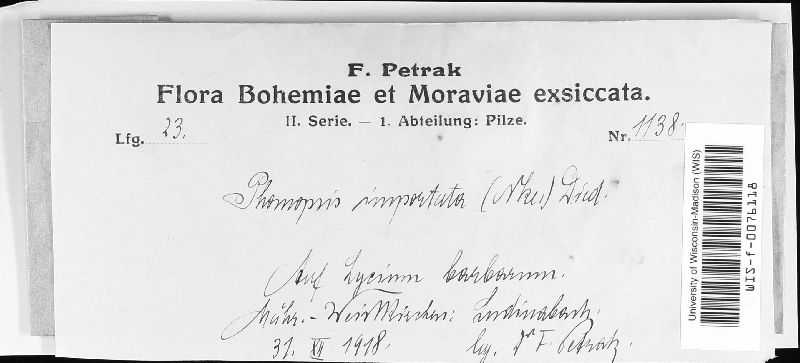 F. Petrak
Flora Bohemiae et Moraviae exsiccata.
II. Serie. — 1. Abteilung: Pilze.
Lfg. 23.
Nr. 1138.
Phomopsis importata (Nke.) Died.
Auf Lycium barbarum.
Mähr.-Weisskirchen:
31. XII 1918. lg. Dr F. Petrak.
University of Wisconsin-Madison (WIS)
WIS-f-0076118